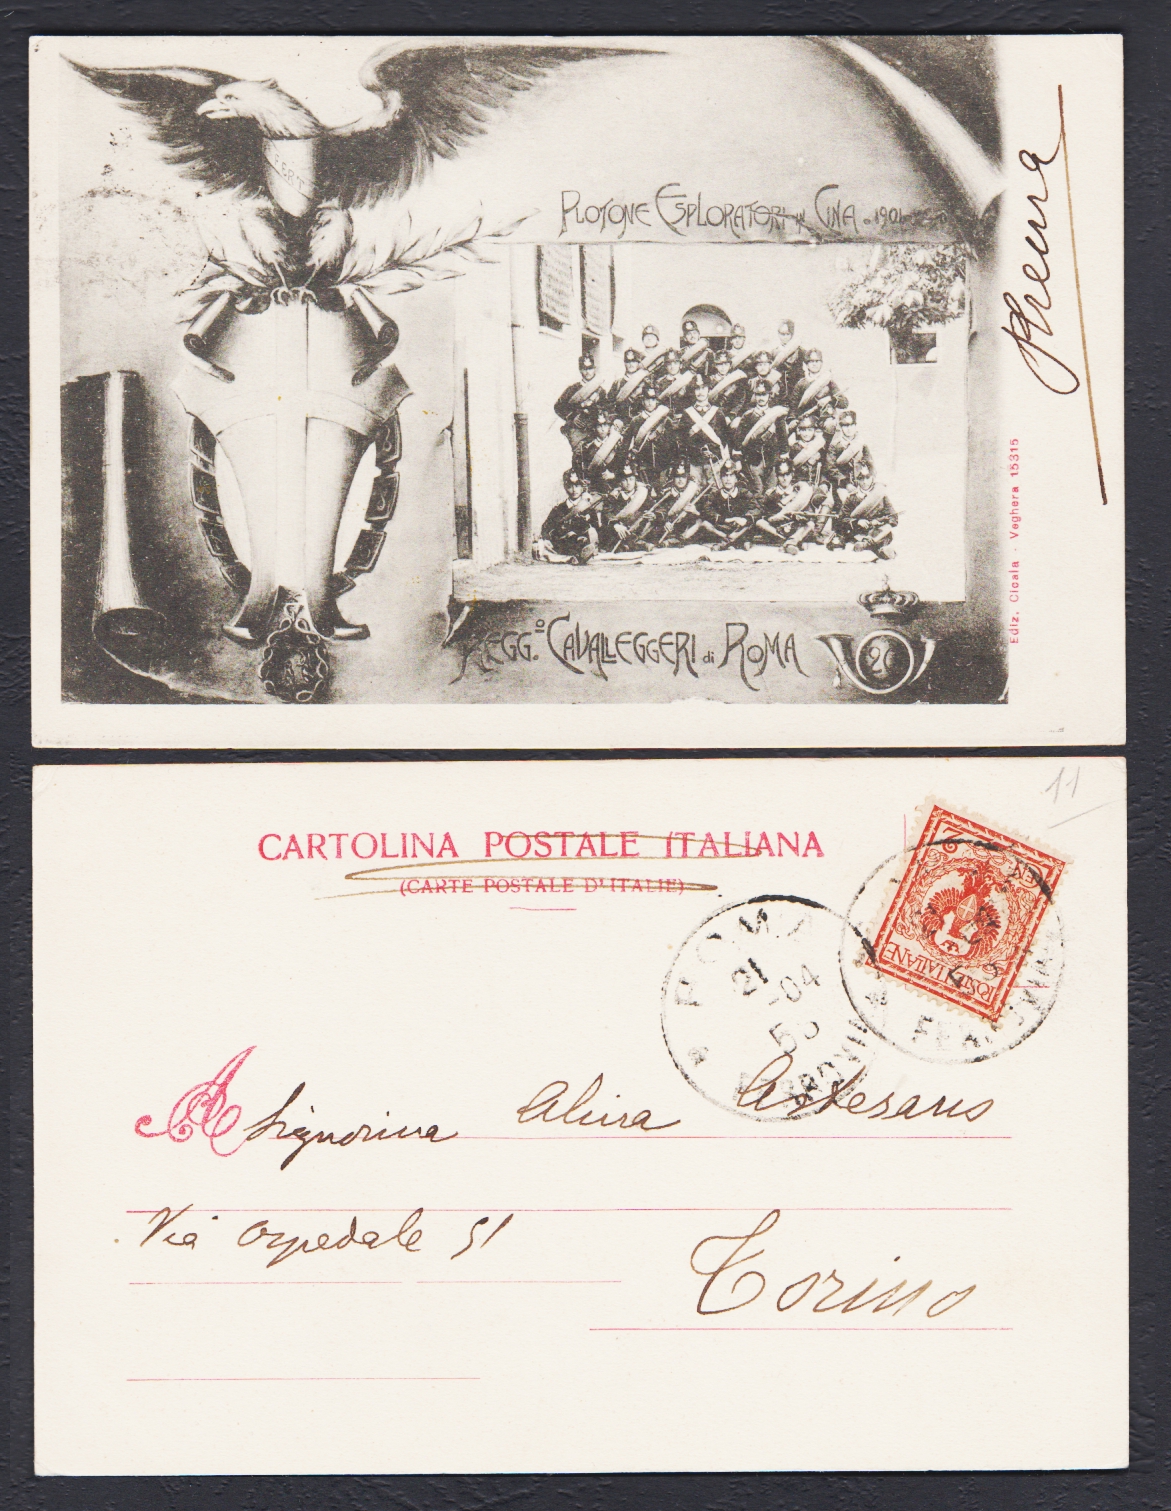 FERT
PLOTONE ESPLORATORI IN CINA 1901
REGG.º CAVALLEGGERI di ROMA
20
Ediz. Cicala - Voghera 15315
11
CARTOLINA POSTALE ITALIANA
(CARTE POSTALE D'ITALIE)
2
POSTE ITALIANE
ROMA
21
-04
FERROVIA
FERROVIA
A Signorina Alvira
Via Ospedale 51
Torino